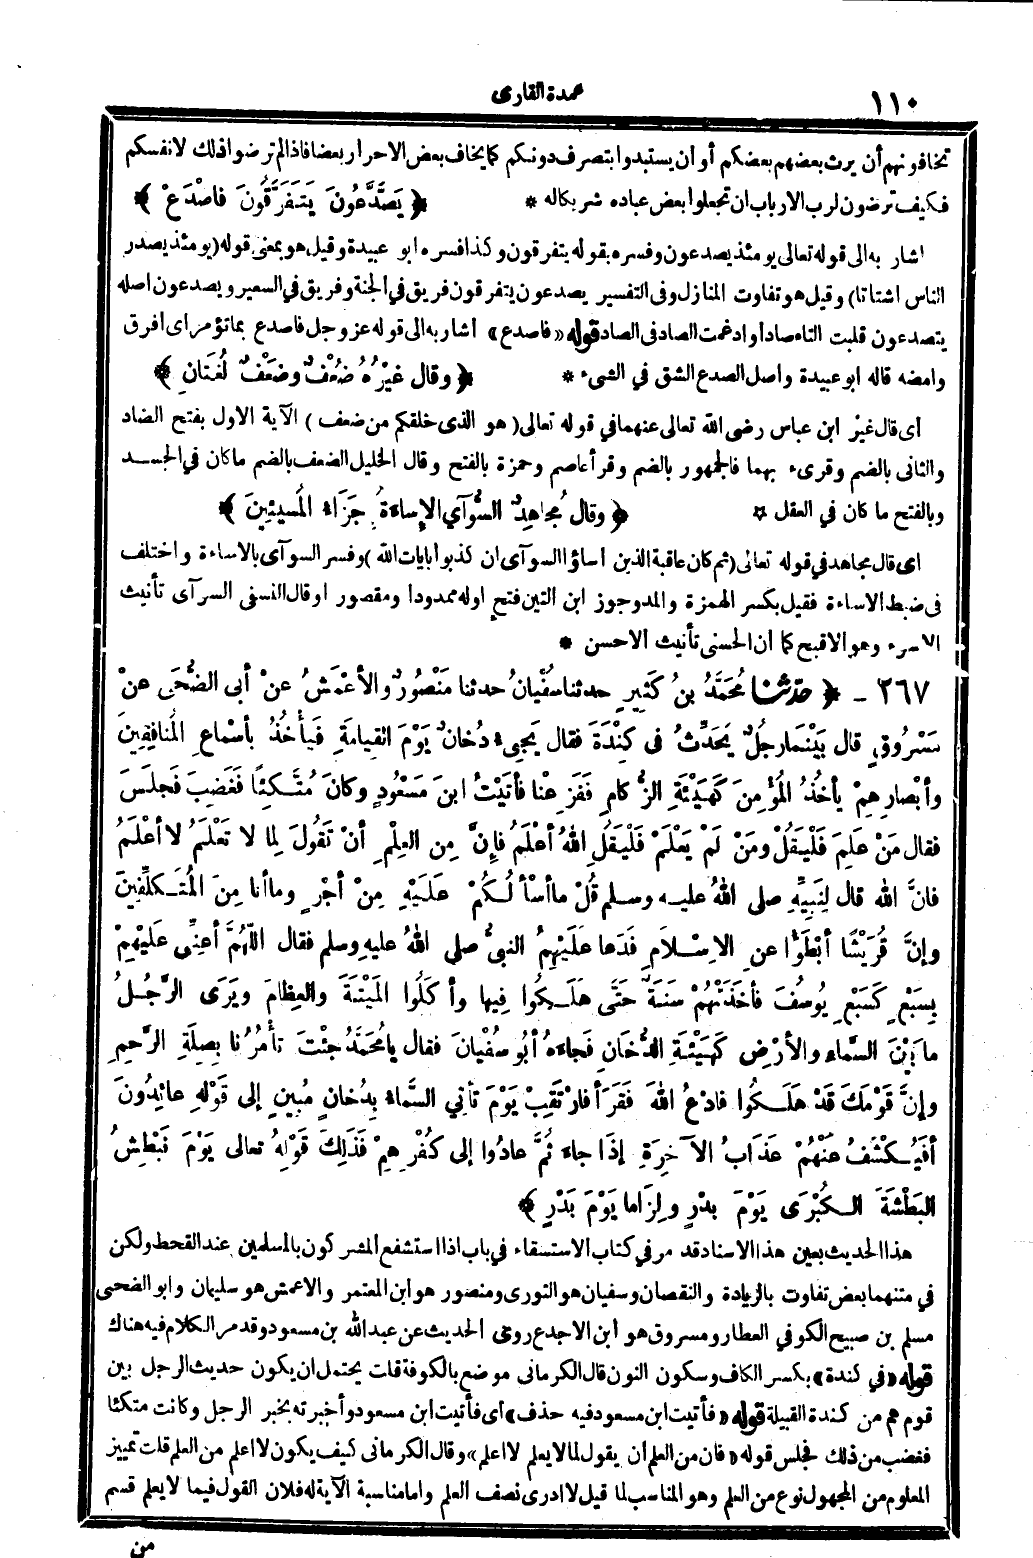 ١١٠
عمدة القارى
تخافونهم أن يرث بعضهم بعضكم أو أن يستبدوا بتصرف دونكم كما يخاف بعض الاحرار بعضا فاذا لم ترضوا ذلك لانفسكم
فكيف ترضون لرب الارباب ان تجعلوا بعض عباده شريكا له * ﴿ يَصَّدَّعُونَ يَتَفَرَّقُونَ فاصْدَعْ ﴾
اشار به الى قوله تعالى يومئذ يصدعون وفسره بقوله يتفرقون وكذا فسره ابو عبيدة وقيل هو بمعنى قوله (يومئذ يصدر
الناس اشتاتا) وقيل هو تفاوت المنازل وفى التفسير يصدعون يتفرقون فريق في الجنة وفريق في السعير ويصدعون اصله
يتصدعون قلبت التاء صادا وادغمت الصاد فى الصاد قوله «فاصدع» اشار به الى قوله عز وجل فاصدع بما تؤمر اى افرق
وامضه قاله ابو عبيدة واصل الصدع الشق في الشىء * ﴿ وقال غيْرُهُ ضُعْفٌ وضَعْفٌ لُغَتانِ ﴾
أى قال غير ابن عباس رضى الله تعالى عنهما في قوله تعالى ( هو الذى خلقكم من ضعف ) الآية الاول بفتح الضاد
والثانى بالضم وقرىء بهما فالجمهور بالضم وقرأ عاصم وحمزة بالفتح وقال الخليل الضعف بالضم ما كان في الجسد
وبالفتح ما كان في العقل * ﴿ وقال مُجاهِدٌ السُّوآي الإساءةُ جَزَاءُ المُسيئِينَ ﴾
اى قال مجاهد في قوله تعالى (ثم كان عاقبة الذين اساؤا السوآى ان كذبوا بايات الله ) وفسر السوآى بالاساءة واختلف
فى ضبط الاساءة فقيل بكسر الهمزة والمد وجوز ابن التين فتح اوله ممدودا ومقصورا وقال النسفى السوآى تأنيث
الاسوء وهو الاقبح كما ان الحسنى تأنيث الاحسن *
٢٦٧ - ﴿ حدثنا مُحَمَّدُ بنُ كَثِيرٍ حدثنا سفْيانُ حدثنا منْصُورٌ والأعْمَشُ عنْ أبى الضُّحَى عنْ
مَسْرُوقٍ قال بَيْنَما رجُلٌ يُحَدِّثُ فى كِنْدَةَ فقال يَجِىءُ دُخانٌ يَوْمَ القِيامَةِ فَيأْخُذُ بأسْماعِ المُنافِقِينَ
وأبْصارِهِمْ يأخُذُ المُؤْمِنَ كَهَيْئَةِ الزُّكامِ فَفَزِعْنا فأتَيْتُ ابنَ مَسْعُودٍ وكانَ مُتَّكِئًا فَغَضِبَ فَجلَسَ
فقال مَنْ عَلِمَ فَلْيَقُلْ ومَنْ لَمْ يَعْلَمْ فَلْيَقُلِ اللهُ أعْلَمُ فإنَّ مِن العِلْمِ أنْ تَقُولَ لِما لا تَعْلَمُ لا أعْلَمُ
فانَّ الله قال لِنَبِيِّهِ صلى اللهُ عليه وسلم قُلْ ما أسْألُكُمْ عَلَيْهِ مِنْ أجْرٍ وما أنا مِنَ المُتَكَلِّفِينَ
وإنَّ قُرَيْشًا أبْطَؤُا عنِ الإسْلامِ فَدَعا عَلَيْهِمُ النبىُّ صلى اللهُ عليهِ وسلم فقال اللّهُمَّ أعِنِّى عَلَيْهِمْ
بِسَبْعٍ كَسَبْعِ يُوسُفَ فأخَذَتْهُمْ سَنَةٌ حَتَّى هَلَكُوا فِيها وأكَلُوا المَيْتَةَ والعِظامَ ويَرَى الرَّجُلُ
ما بَيْنَ السَّماءِ والأرْضِ كَهَيْئَةِ الدُّخَانِ فَجاءَهُ أبُو سُفْيانَ فقال يا مُحَمَّدُ جِئْتَ تأْمُرُنا بِصِلَةِ الرَّحِمِ
وإنَّ قَوْمَكَ قَدْ هَلَكُوا فادْعُ اللهَ فَقَرَأ فارْتَقِبْ يَوْمَ تأتي السَّماءُ بِدُخانٍ مُبينٍ إلى قَوْلِهِ عائِدُونَ
أفَيُكْشَفُ عَنْهُمْ عَذَابُ الآخِرَةِ إذَا جاءَ ثُمَّ عادُوا إلى كُفْرِهِمْ فَذَلِكَ قَوْلُهُ تعالى يَوْمَ نَبْطِشُ
البَطْشَةَ الكُبْرَى يَوْمَ بدْرٍ ولِزَاما يَوْمَ بَدْرٍ ﴾
هذا الحديث بعين هذا الاسناد قد مر في كتاب الاستسقاء في باب اذا استشفع المشركون بالمسلمين عند القحط ولكن
في متنهما بعض تفاوت بالزيادة والنقصان وسفيان هو الثورى ومنصور هو ابن المعتمر والاعمش هو سليمان وابو الضحى
مسلم بن صبيح الكوفي العطار ومسروق هو ابن الاجدع روى الحديث عن عبدالله بن مسعود وقد مر الكلام فيه هناك
قوله «في كندة» بكسر الكاف وسكون النون قال الكرمانى موضع بالكوفة قات يحتمل ان يكون حديث الرجل بين
قوم هم من كندة القبيلة قوله «فأتيت ابن مسعود فيه حذف» أى فأتيت ابن مسعود وأخبرته بخبر الرجل وكانت متكئا
فغضب من ذلك فجلس قوله «فان من العلم أن يقول لما لا يعلم لا اعلم» وقال الكرمانى كيف يكون لا اعلم من العلم قات تمييز
المعلوم من المجهول نوع من العلم وهو المناسب لما قيل لا ادرى نصف العلم واما مناسبة الآية له فلان القول فيما لا يعلم قسم
من